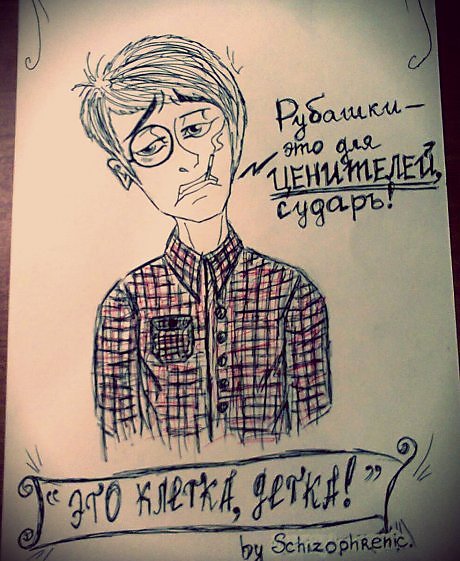 Рубашки—
это для
ЦЕНИТЕЛЕЙ,
сударь!
"ЭТО КЛЕТКА, ДЕТКА!"
by Schizophrenic.